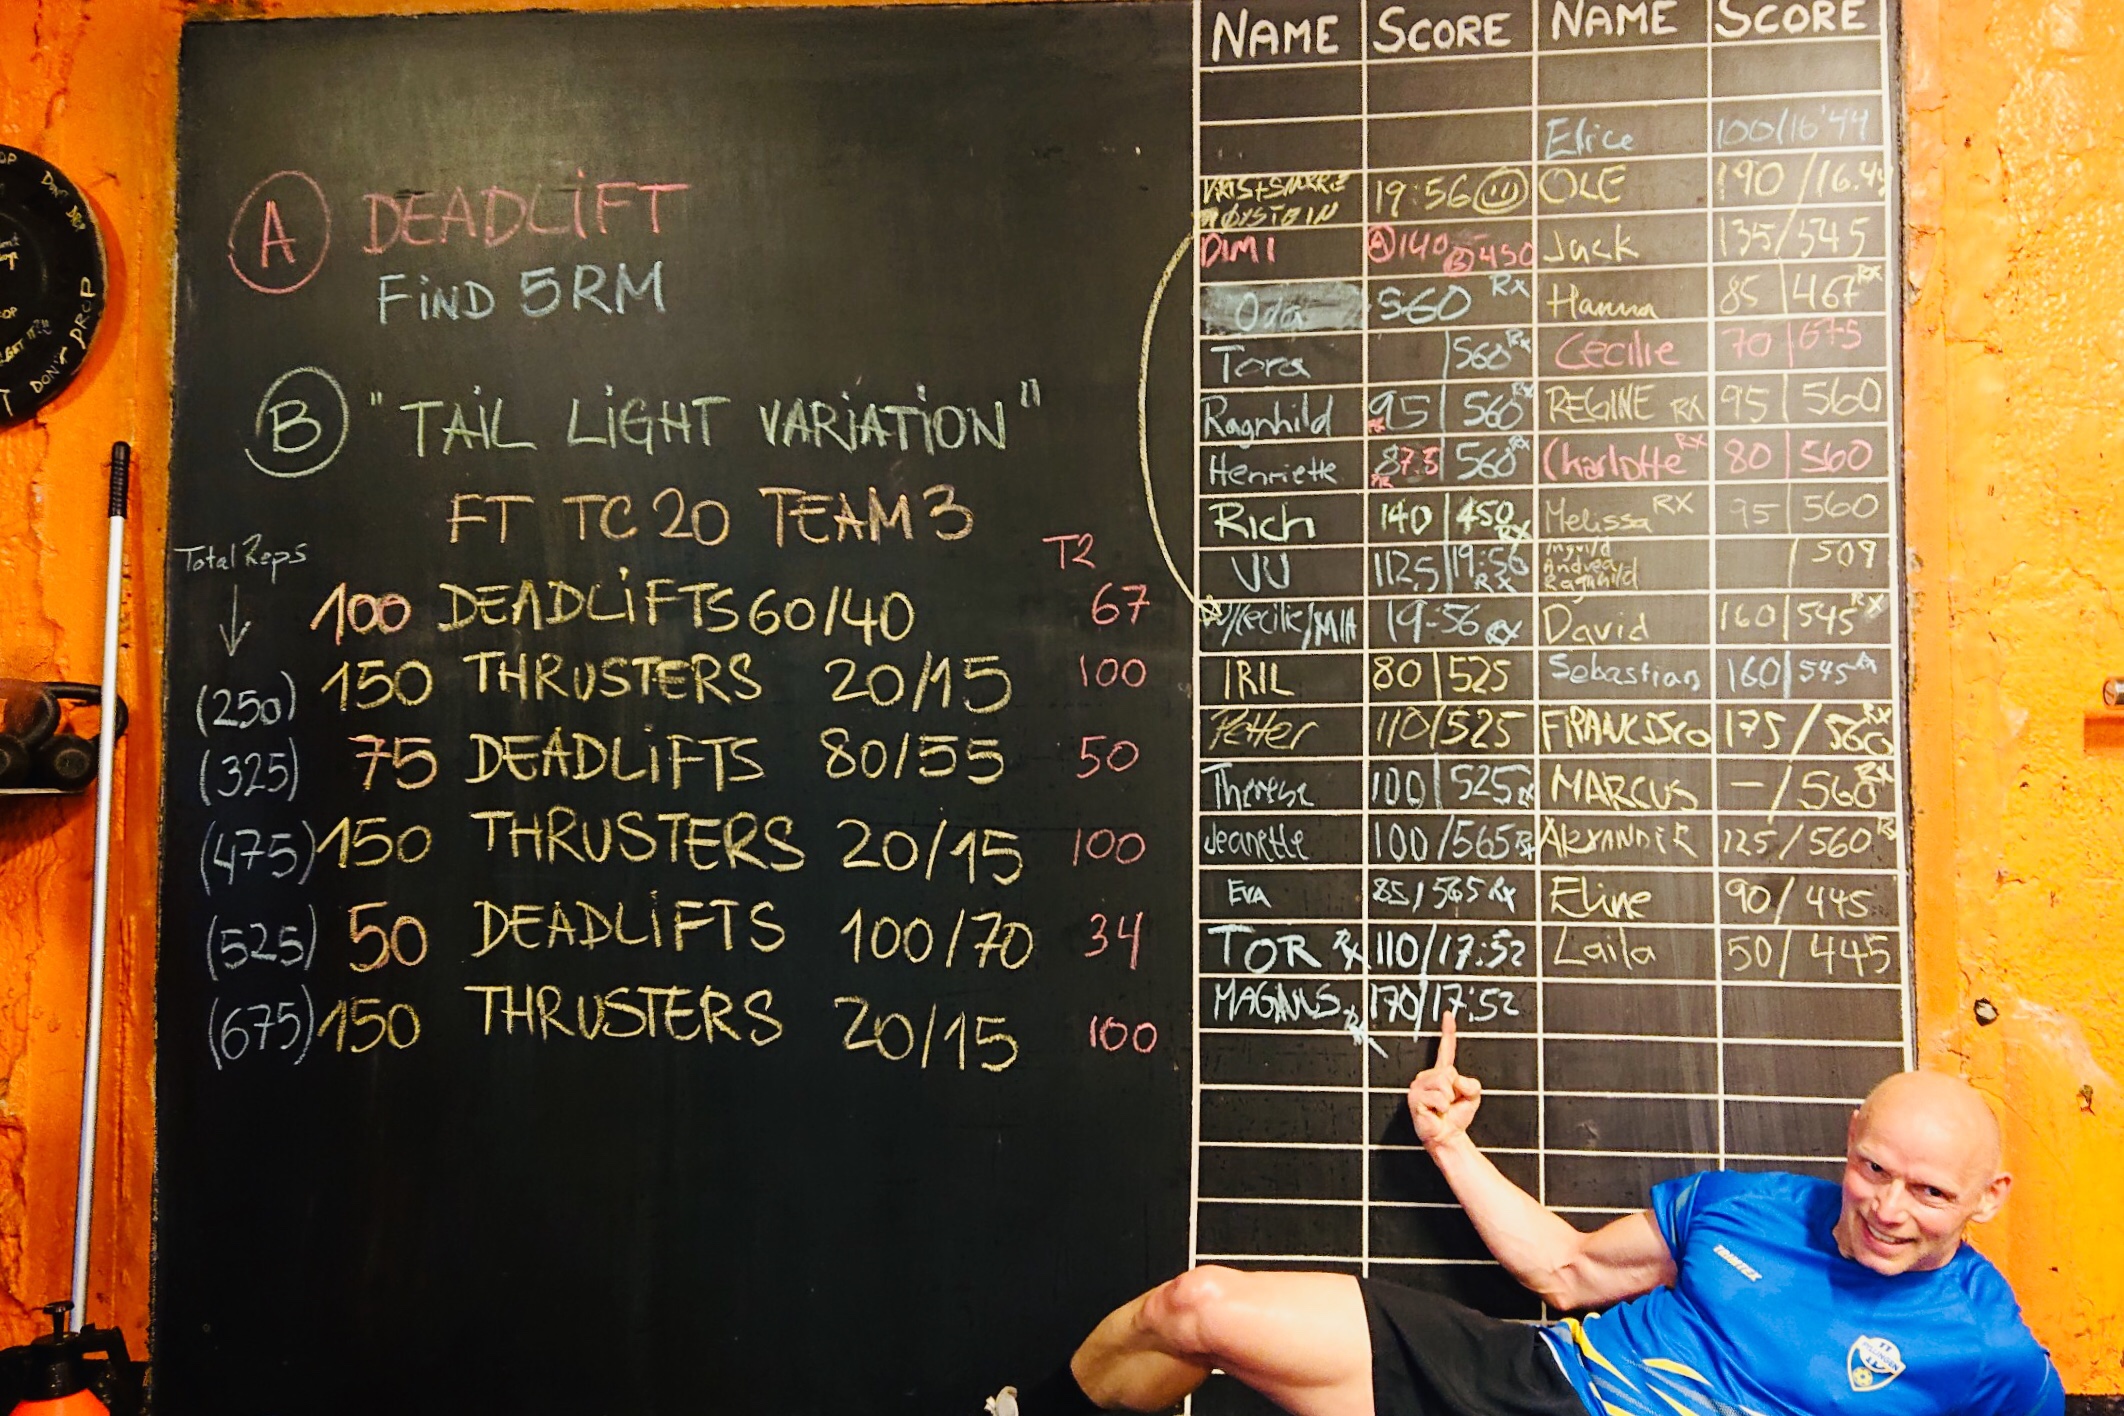 A DEADLIFT
FIND 5RM
B "TAIL LIGHT VARIATION"
FT TC 20 TEAM 3
Total Reps T2
100 DEADLIFTS 60/40 67
(250) 150 THRUSTERS 20/15 100
(325) 75 DEADLIFTS 80/55 50
(475) 150 THRUSTERS 20/15 100
(525) 50 DEADLIFTS 100/70 34
(675) 150 THRUSTERS 20/15 100
NAME SCORE NAME SCORE
Elice 100/16'44
19:56 OLE 190/16.44
DIMI A 140 B 450 Jack 135/545
Oda 560 Rx Hanna 85/467 RX
Tora 560 Rx Cecilie 70/675
Ragnhild 95/560 RX REGINE RX 95/560
Henriette 87.5/560 RX Charlotte RX 80/560
Rich 140/450 RX Melissa RX 95/560
VU 112,5/19:56 RX Ingvild Andrea Ragnhild /509
/Cecilie/MIA 19:56 RX David 160/545 RX
IRIL 80/525 Sebastian 160/545 RX
Petter 110/525 FRANCISCO 175/560 RX
Therese 100/525 RX MARCUS -/560 RX
Jeanette 100/565 RX ALEXANDER 125/560 RX
EVA 85/565 RX Eline 90/445
TOR RX 110/17:52 Laila 50/445
MAGNUS RX 170/17:52
DON'T DROP
TRIMTEX
FYLLINGEN